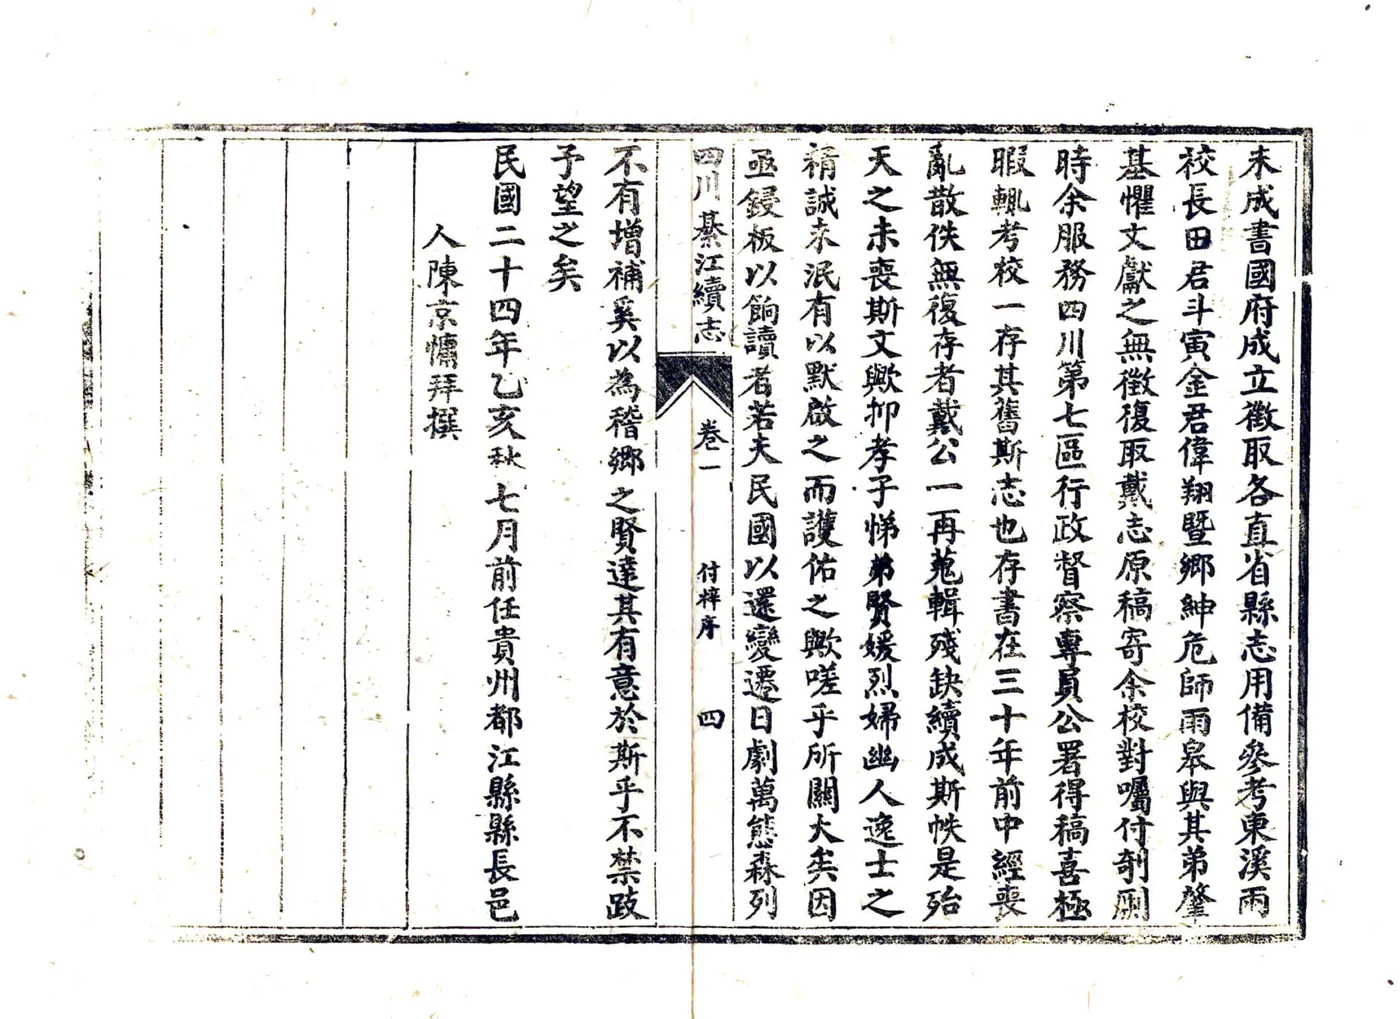 未成書國府成立徵取各直省縣志用備參考東溪兩
校長田君斗寅金君偉翔暨鄉紳危師雨皋與其弟肇
基懼文獻之無徵復取戴志原稿寄余校對囑付剞劂
時余服務四川第七區行政督察專員公署得稿喜極
暇輒考校一存其舊斯志也存書在三十年前中經喪
亂散佚無復存者戴公一再蒐輯殘缺續成斯帙是殆
天之未喪斯文歟抑孝子悌弟賢媛烈婦幽人逸士之
精誠未泯有以默啟之而護佑之歟嗟乎所關大矣因
亟鋟板以餉讀者若夫民國以還變遷日劇萬態森列
四川綦江續志 卷一 付梓序 四
不有增補奚以為稽鄉之賢達其有意於斯乎不禁跂
予望之矣
民國二十四年乙亥秋七月前任貴州都江縣縣長邑
人陳京慵拜撰